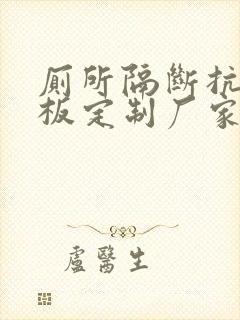 厠所隔斷抗
板定制厂家
盧醫生